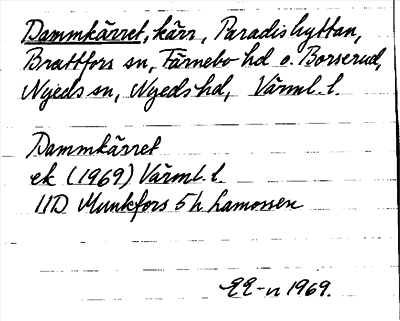 Dammkärret, kärr, Paradishyttan,
Brattfors sn, Färnebo hd o. Borserud,
Nyeds sn, Nyeds hd, Värml. l.
Dammkärret
ek (1969) Värml. l.
11D Munkfors 5 h Lamossen
1969.